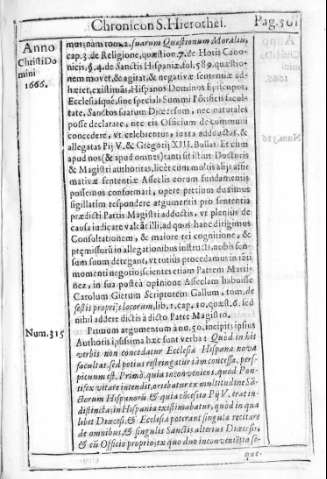 Chronicon S. Hierothei. Pag. 501
Anno
Christi Do
mini
1666.
mur, nam tom. 1. suarum Quæstionum Moralium,
cap. 3. de Religione, quæstion. 7. de Horis Cano-
nicis, §. 4. de Sanctis Hispaniæ, fol. 589. quæstio-
nem movet, & agitat, & negativæ sententiæ ad-
hæret, existimans Hispanos Dominos Episcopos,
Ecclesiasque, sine speciali Summi Põtificis facul-
tate, Sanctos suarum Diœcesum, nec naturales
posse declarare, nec eis Officium de communi
concedere, vt celebrentur, iuxta adductas, &
allegatas Pij V. & Gregorij XIII. Bullas. Et cùm
apud nos (& apud omnes) tanti sit istius Doctoris
& Magistri authoritas, licèt cum multis alijs affir-
mativæ sententiæ Asseclis eorum fundamentis
possemus conformari, opere pretium duximus
sigillatim respondere argumentis pro sententia
prædicti Patris Magistri adductis, vt plenius de
causa iudicare valeãt illi, ad quos hanc dirigimus
Consultationem, & maiore rei cognitione, &
præmissarũ in allegationibus instructi, nobis sen-
sum suum detegant, vt totius procedamus in tãti
momenti negotio, scientes etiam Patrem Marti-
nez, in sua postea opinione Asseclam habuisse
Carolum Scriptorem Gallum, tom. de
festis proprijs locorum, lib. 1. cap. 10. quæst. 6. sed
nihil addere dictis à dicto Patre Magistro.
Num. 315
Primum argumentum à nu. 50. incipit, ipsius
Authoris ipsissima hæc sunt verba: Quòd in his
verbis non concedatur Ecclesia Hispana nova
facultas, sed potius restringatur iàm concessa, pers-
picuum est. Primò, quia inconveniens, quod Pon-
tifex vitare intendit, oriebatur ex multitudine Sã-
ctorum Hispanorũ, & quia existimabatur, quòd in qua
libet Diœcesi, & Ecclesia poterant singula recitare
de omnibus, & singulis Sanctis alterius Diœcesi,
& cũ Officio proprio; ex quo duo inconvenientia se-
que-